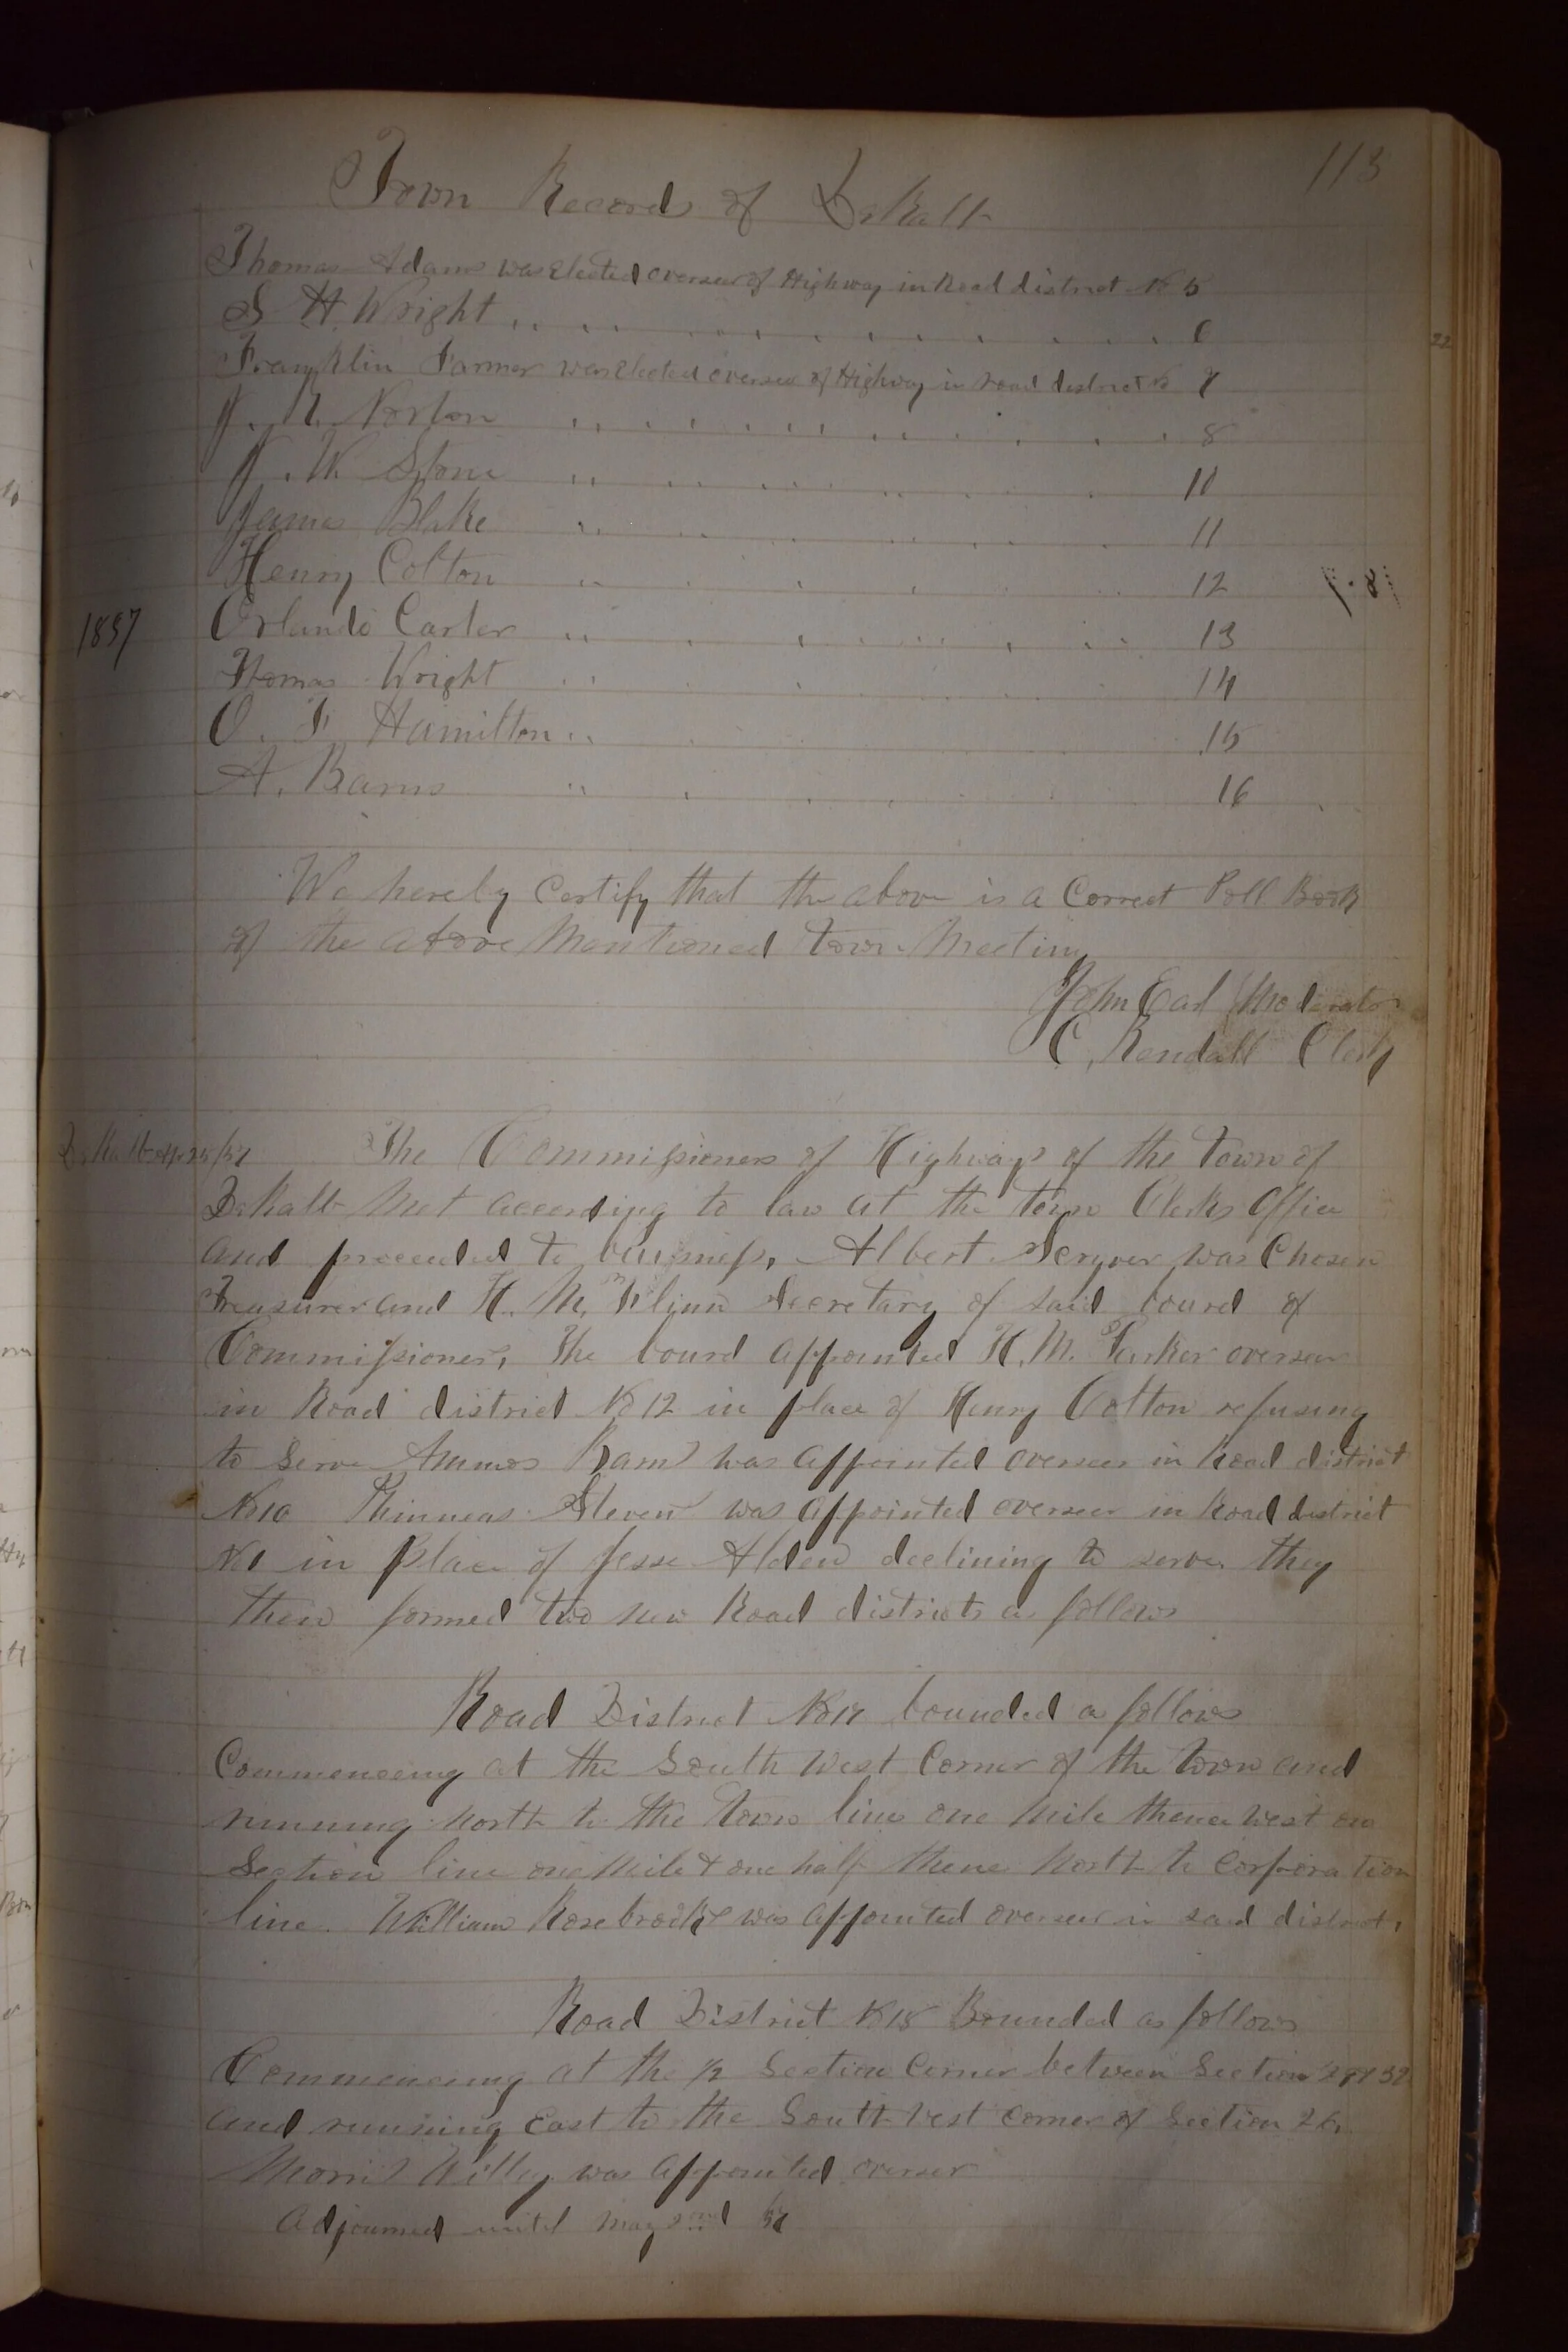 113
Town Records of DeKalb
Thomas Adams was elected overseer of Highway in Road district No 5
S H. Wright 6
Franklin Farmer was elected overseer of Highway in road district No 7
Norton 8
J. W. Stone 10
James Blake 11
Henry Colton 12
1857 Orlando Carter 13
Thomas Wright 14
O. F. Hamilton 15
A. Barns 16
We hereby Certify that the above is a Correct Poll Book
of the above Mentioned Town Meeting
John Earl Moderator
C. Kendall Clerk
The Commissioners of Highways of the Town of
DeKalb Met according to law at the town Clerks Office
and proceeded to buisness. Albert was Chosen
Treasurer and H. M. Flinn Secretary of said board of
Commissioners, The board appointed H. M. Parker overseer
in Road district No 12 in place of Henry Colton refusing
to Serve Ammos Barns was appointed overseer in Road district
No 10 Phinneas Steven was appointed overseer in Road district
No 1 in Place of Jesse Alden declining to serve, they
then formed two new Road districts as follows
Road District No 17 bounded as follows
Commencing at the South West Corner of the Town and
running North to the Town line one Mile thence West on
Section line one Mile & one half thence North to Corporation
line. William Rosebrooke was appointed overseer in said district,
Road District No 18 Bounded as follows
Commencing at the 1/2 Section Corner between Section
and running East to the South West Corner of Section 26
Morris Willey was appointed overseer
Adjourned until May 2nd